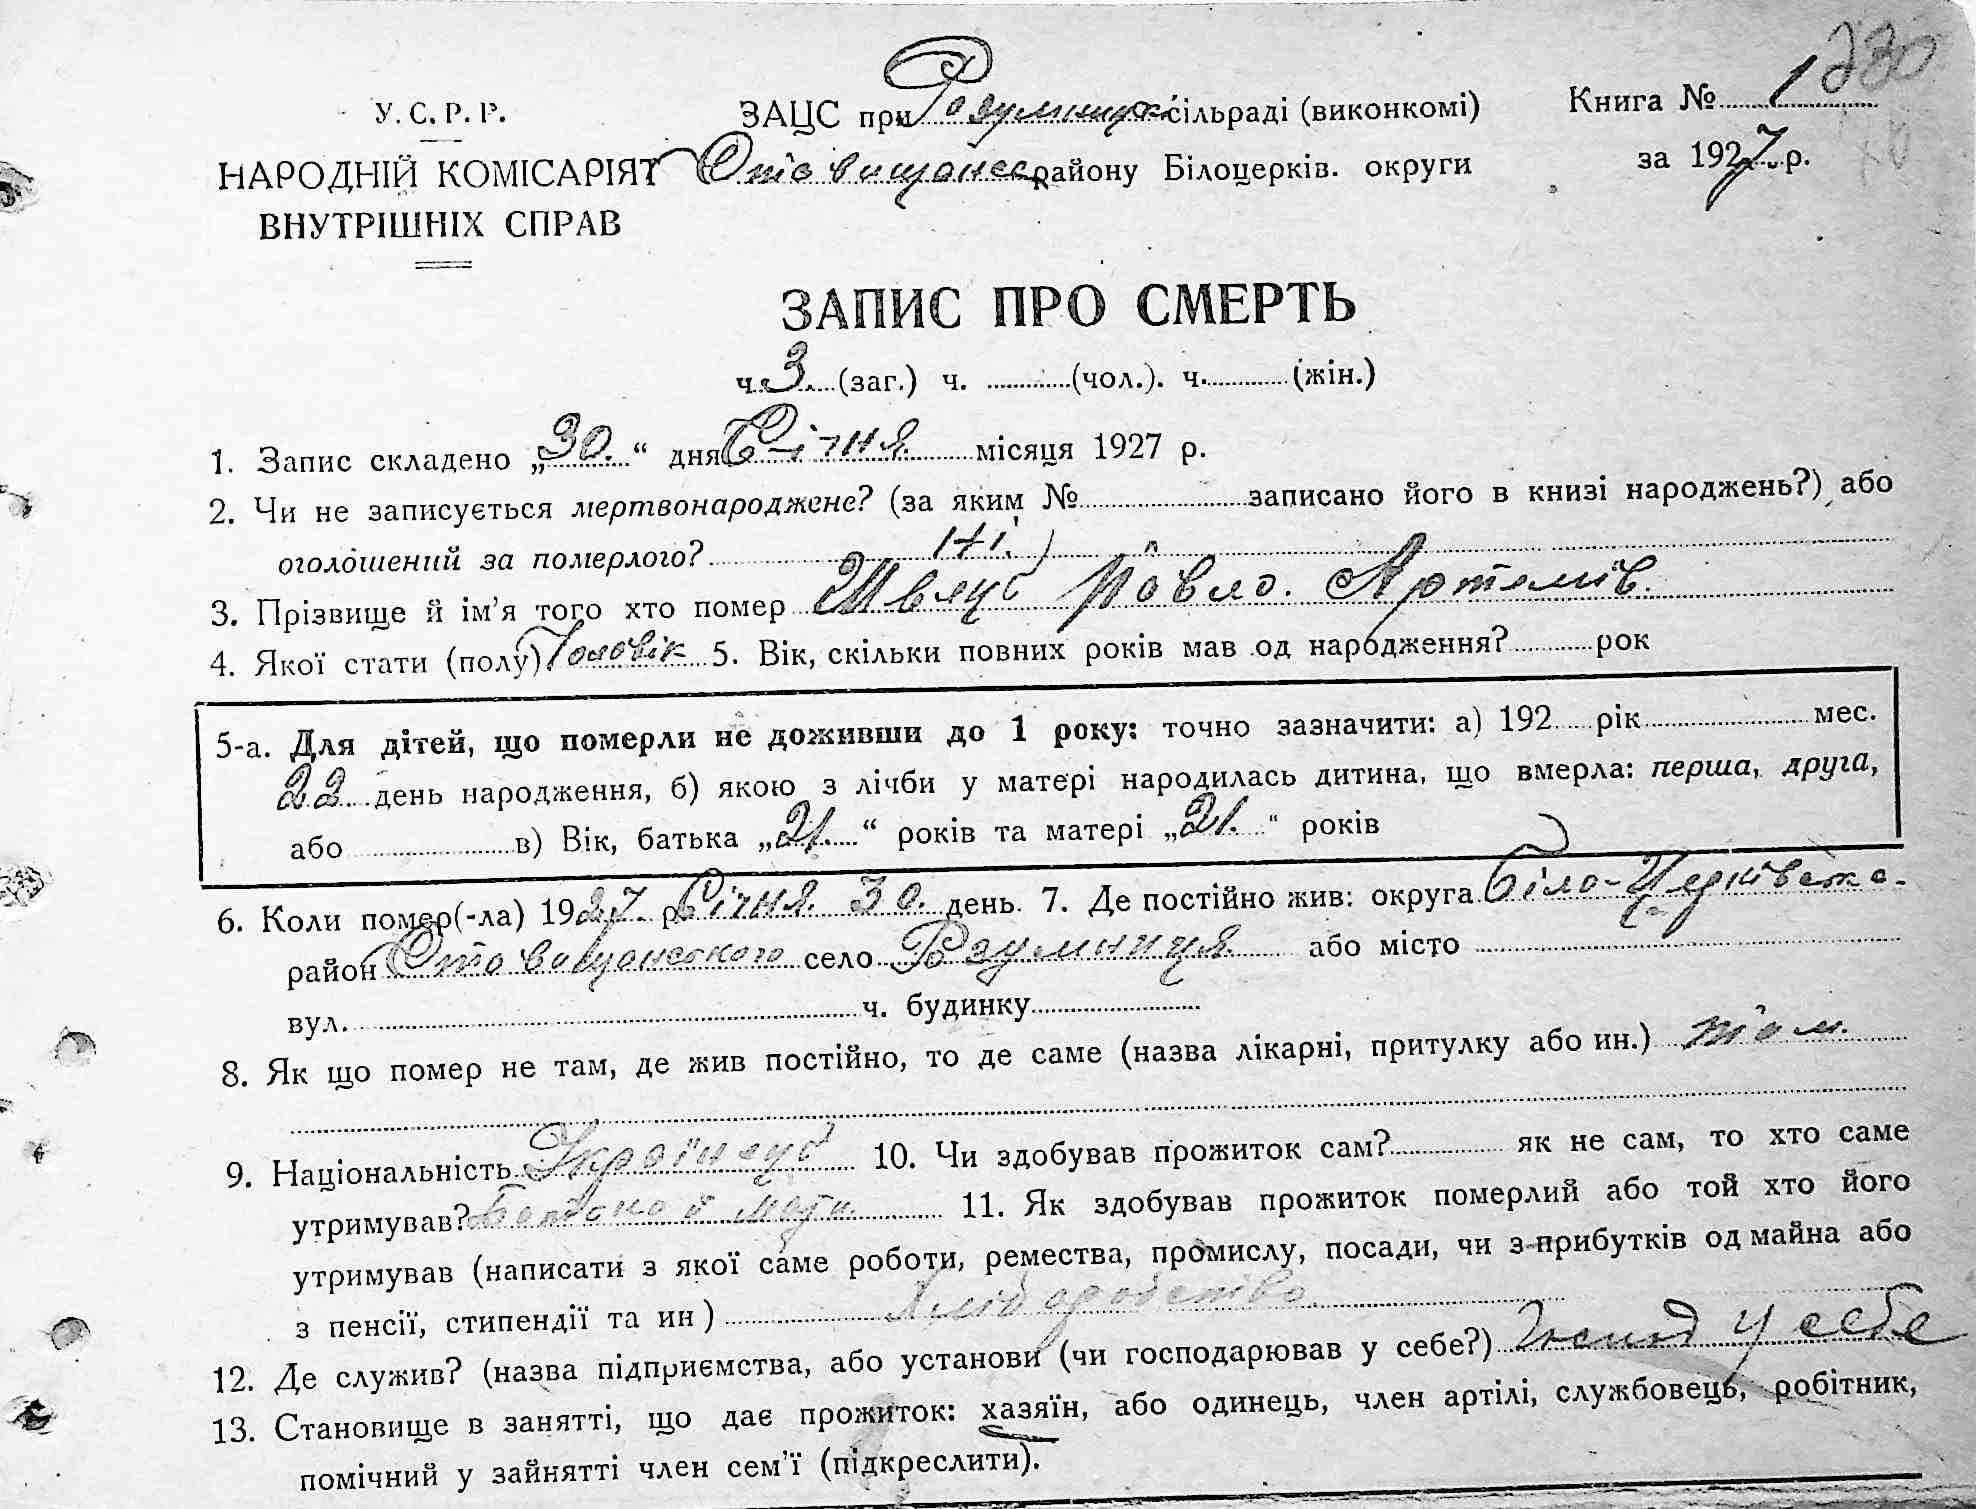 230
У. С. Р. Р.
ЗАЦС при Розумницкій сільраді (виконкомі)
Книга № 1
НАРОДНІЙ КОМІСАРІЯТ
Ставищанс району Білоцерків. округи
за 1927 р.
ВНУТРІШНІХ СПРАВ
ЗАПИС ПРО СМЕРТЬ
ч. 3. (заг.) ч. (чол.). ч. (жін.)
1. Запис складено „30.“ дня Січня. місяця 1927 р.
2. Чи не записується мертвонароджене? (за яким № записано його в книзі народжень?) або
оголошений за померлого? Ні.
3. Прізвище й ім'я того хто помер Швець Павло. Артемів.
4. Якої стати (полу) Чоловік 5. Вік, скільки повних років мав од народження? рок
5-а. Для дітей, що померли не доживши до 1 року: точно зазначити: а) 192 рік мес.
22 день народження, б) якою з лічби у матері народилась дитина, що вмерла: перша, друга,
або в) Вік, батька „21.“ років та матері „21.“ років
6. Коли помер(-ла) 1927 р. Січня. 30. день. 7. Де постійно жив: округа Біло-Церківська.
район Ставищанського село Розумниця. або місто
вул. ч. будинку
8. Як що помер не там, де жив постійно, то де саме (назва лікарні, притулку або ин.) там.
9. Національність Українець 10. Чи здобував прожиток сам? як не сам, то хто саме
утримував? Батько й мати. 11. Як здобував прожиток померлий або той хто його
утримував (написати з якої саме роботи, ремества, промислу, посади, чи з прибутків од майна або
з пенсії, стипендії та ин ) Хліборобство.
12. Де служив? (назва підприємства, або установи (чи господарював у себе?) Господ у себе
13. Становище в занятті, що дає прожиток: хазяїн, або одинець, член артілі, службовець, робітник,
помічний у зайнятті член сем'ї (підкреслити).